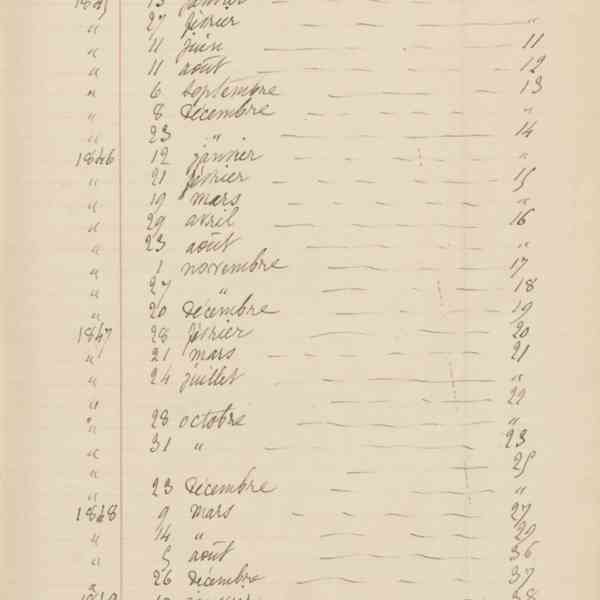 1845 13 janvier
" 27 février "
" 11 juin 11
" 11 août 12
" 6 septembre 13
" 8 décembre "
" 23 " 14
1846 12 janvier "
" 21 février 15
" 19 mars "
" 29 avril 16
" 23 août "
" 1 novembre 17
" 27 " 18
" 20 décembre 19
1847 28 février 20
" 21 mars 21
" 24 juillet "
" 22
" 28 octobre "
" 31 " 23
" 25
" 23 décembre "
1848 9 mars 27
" 14 " 29
" 5 août 36
" 26 décembre 37
38